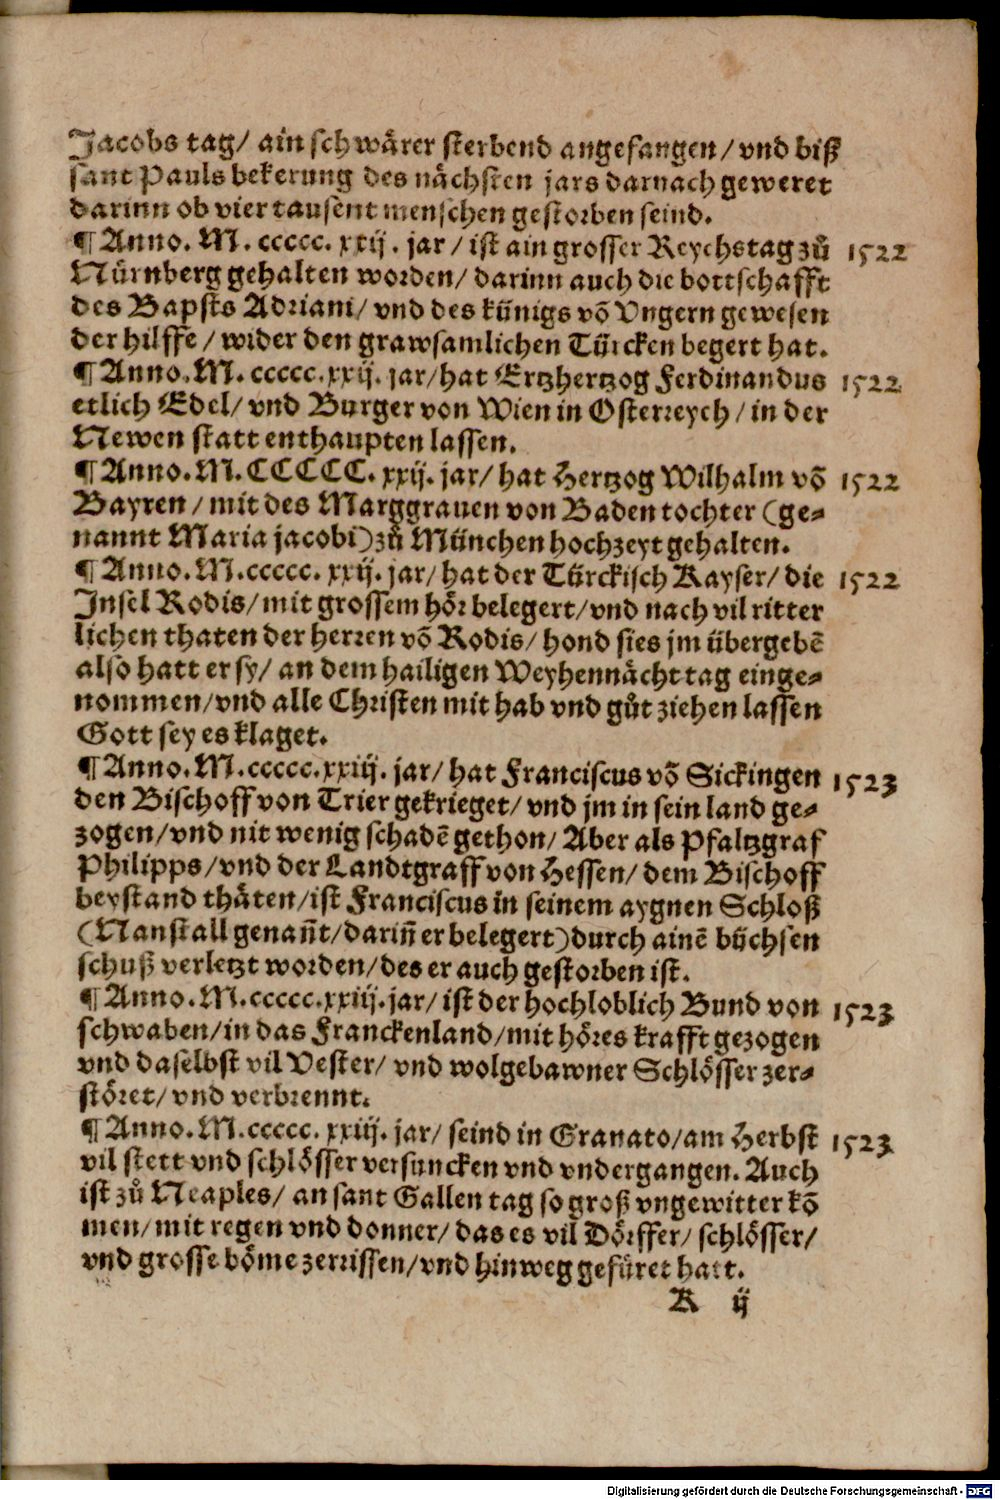 Jacobs tag/ ain schwårer sterbend angefangen/ vnd biß
sant Pauls bekerung des nåchsten jars darnach geweret
darinn ob vier tausent menschen gestorben seind.
¶ Anno. M. ccccc. xxij. jar / ist ain grosser Reychstag zů 1522
Nürnberg gehalten worden/ darinn auch die bottschafft
des Bapsts Adriani/ vnd des künigs võ Vngern gewesen
der hilffe / wider den grawsamlichen Türcken begert hat.
¶ Anno. M. ccccc. xxij. jar/ hat Ertzhertzog Ferdinandus 1522
etlich Edel/ vnd Burger von Wien in Osterreych / in der
Newen statt enthaupten lassen.
¶ Anno. M. CCCCC. xxij. jar/ hat Hertzog Wilhalm võ 1522
Bayren / mit des Marggrauen von Baden tochter (ge⸗
nannt Maria jacobi) zů München hochzeyt gehalten.
¶ Anno. M. ccccc. xxij. jar/ hat der Türckisch Kayser/ die 1522
Jnsel Rodis/ mit grossem hör belegert/ vnd nach vil ritter
lichen thaten der herren võ Rodis/ hond sies jm übergebẽ
also hatt er sy/ an dem hailigen Weyhennåcht tag einge⸗
nommen/ vnd alle Christen mit hab vnd gůt ziehen lassen
Gott sey es klaget.
¶ Anno. M. ccccc. xxiij. jar/ hat Franciscus võ Sickingen 1523
den Bischoff von Trier gekrieget/ vnd jm in sein land ge⸗
zogen/ vnd nit wenig schadẽ gethon/ Aber als Pfaltzgraf
Philipps/ vnd der Landtgraff von Hessen/ dem Bischoff
beystand thåten/ ist Franciscus in seinem aygnen Schloß
(Nanstall genañt/ dariñ er belegert) durch ainẽ büchsen
schuß verletzt worden/ des er auch gestorben ist.
¶ Anno. M. ccccc. xxiij. jar/ ist der hochloblich Bund von 1523
schwaben/ in das Franckenland/ mit höres krafft gezogen
vnd daselbst vil Vester/ vnd wolgebawner Schlösser zer⸗
störet/ vnd verbrennt.
¶ Anno. M. ccccc. xxiij. jar/ seind in Granato/ am Herbst 1523
vil stett vnd schlösser versuncken vnd vndergangen. Auch
ist zů Neaples/ an sant Gallen tag so groß vngewitter kõ
men/ mit regen vnd donner/ das es vil Dörffer/ schlösser/
vnd grosse böme zerrissen/ vnd hinweg gefüret hatt.
K ij
Digitalisierung gefördert durch die Deutsche Forschungsgemeinschaft - DFG